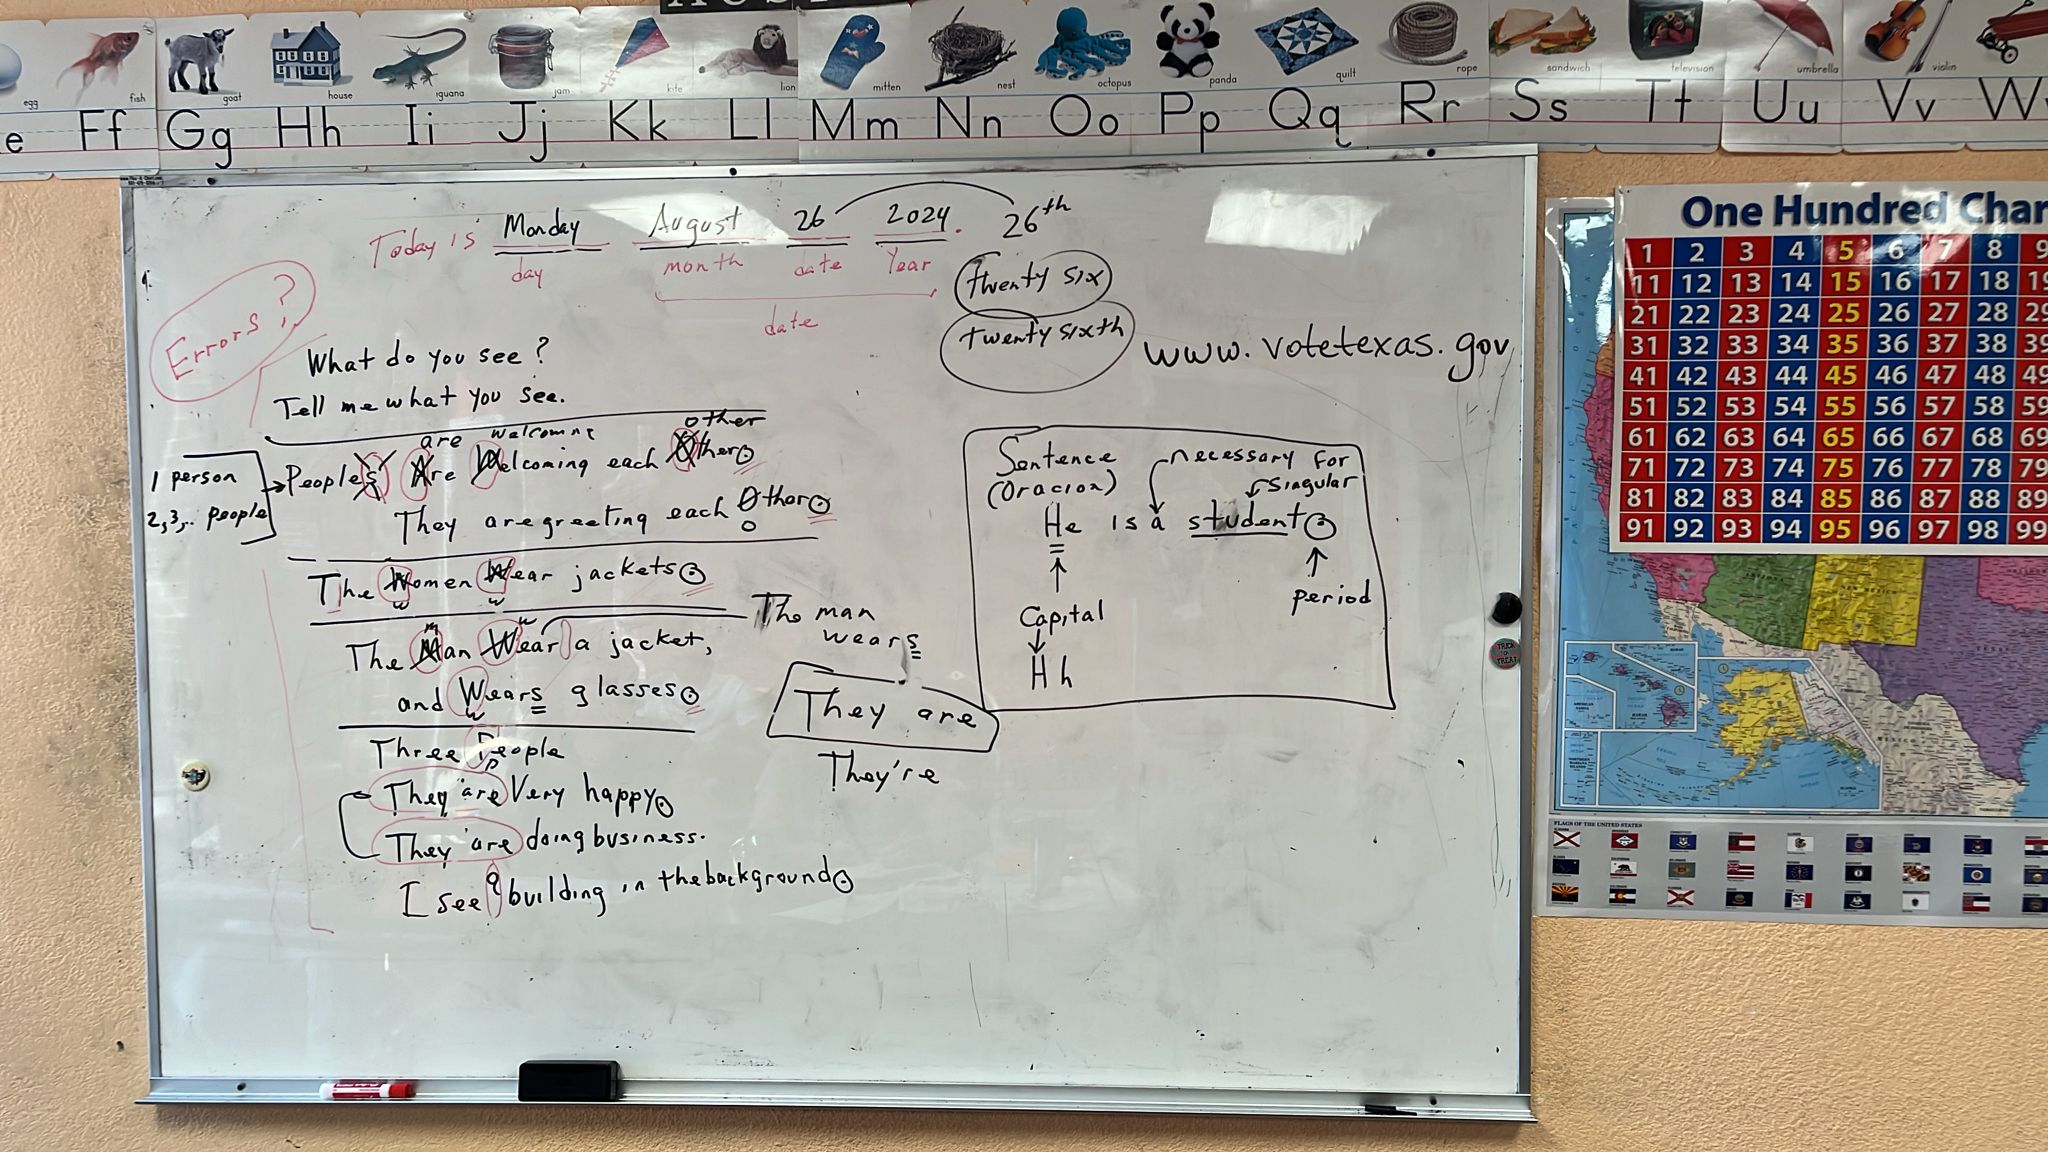 egg fish goat house iguana jam kite lion mitten nest octopus panda quilt rope sandwich television umbrella violin
e Ff Gg Hh Ii Jj Kk Ll Mm Nn Oo Pp Qq Rr Ss Tt Uu Vv W
Today is Monday August 26 2024. 26th
day month date Year
date
twenty six
twenty sixth
www.votetexas.gov
Errors?
What do you see?
Tell me what you see.
are welcoming other
1 person
2,3,.. people
Peoples Are Welcoming each Other.
They are greeting each Other.
o
The Women Wear jackets.
w w
m w
The Man Wear a jacket,
and Wears glasses.
w
The man
wears
Three People
p
They are Very happy.
They are doing business.
I see a building in the background.
They are
They're
Sentence
(Oracion)
necessary for
singular
He is a student.
period
Capital
H h
One Hundred Char
1 2 3 4 5 6 7 8 9
11 12 13 14 15 16 17 18 19
21 22 23 24 25 26 27 28 29
31 32 33 34 35 36 37 38 39
41 42 43 44 45 46 47 48 49
51 52 53 54 55 56 57 58 59
61 62 63 64 65 66 67 68 69
71 72 73 74 75 76 77 78 79
81 82 83 84 85 86 87 88 89
91 92 93 94 95 96 97 98 99
TRICK
OR
TREAT
FLAGS OF THE UNITED STATES